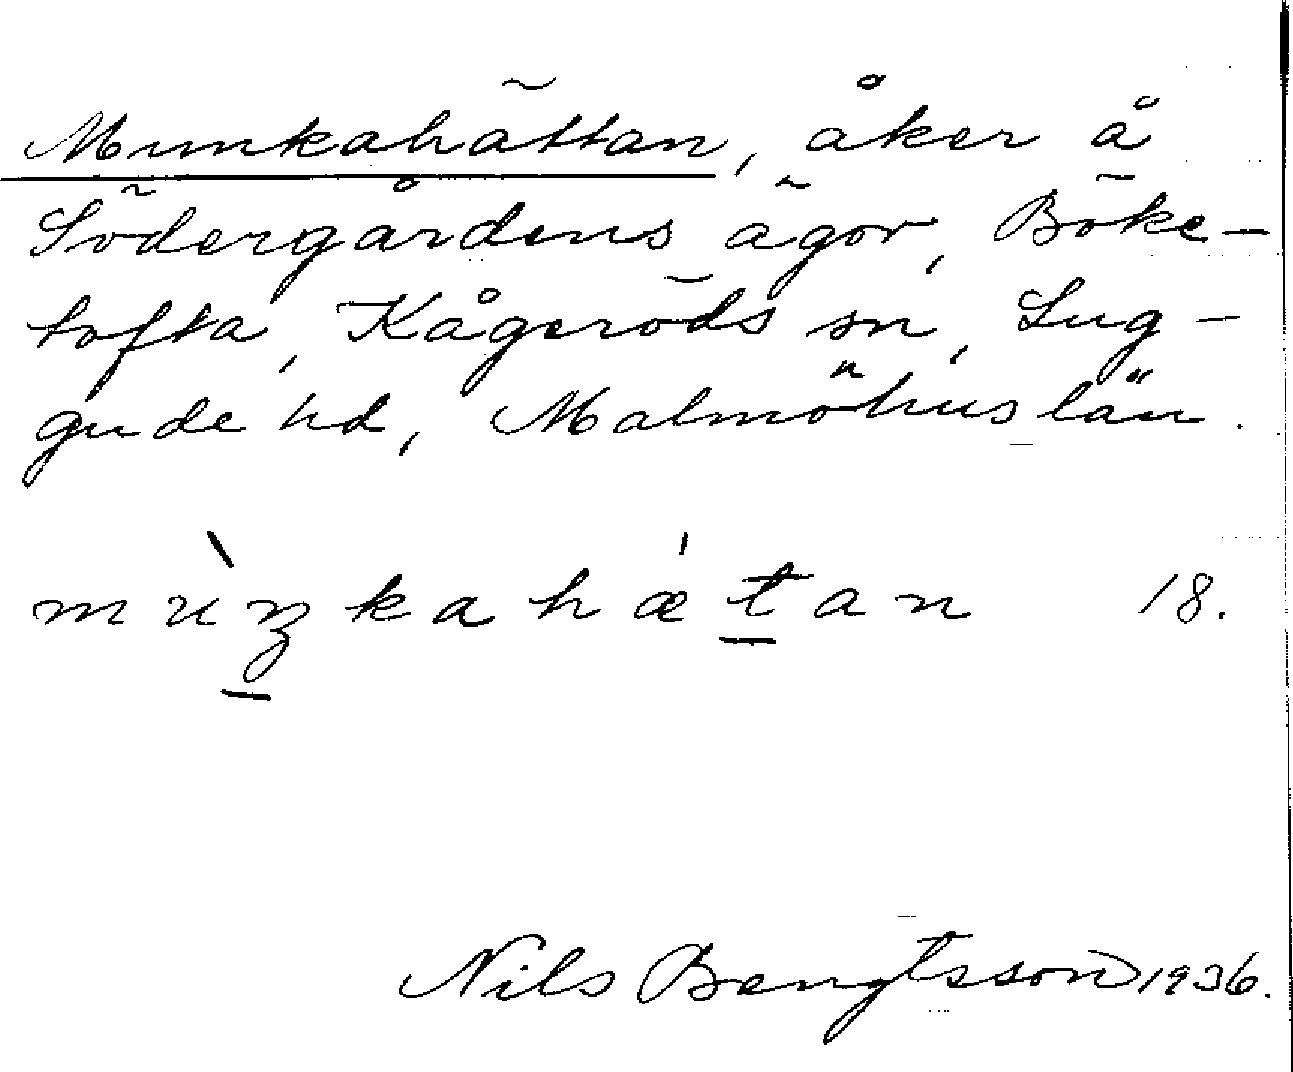 Munkahättan, åker å
Södergårdens ägor, Böke-
tofta, Kågeröds sn, Lug-
gude hd, Malmöhus län.
mùŋkahǽtan 18.
Nils Bengtsson 1936.